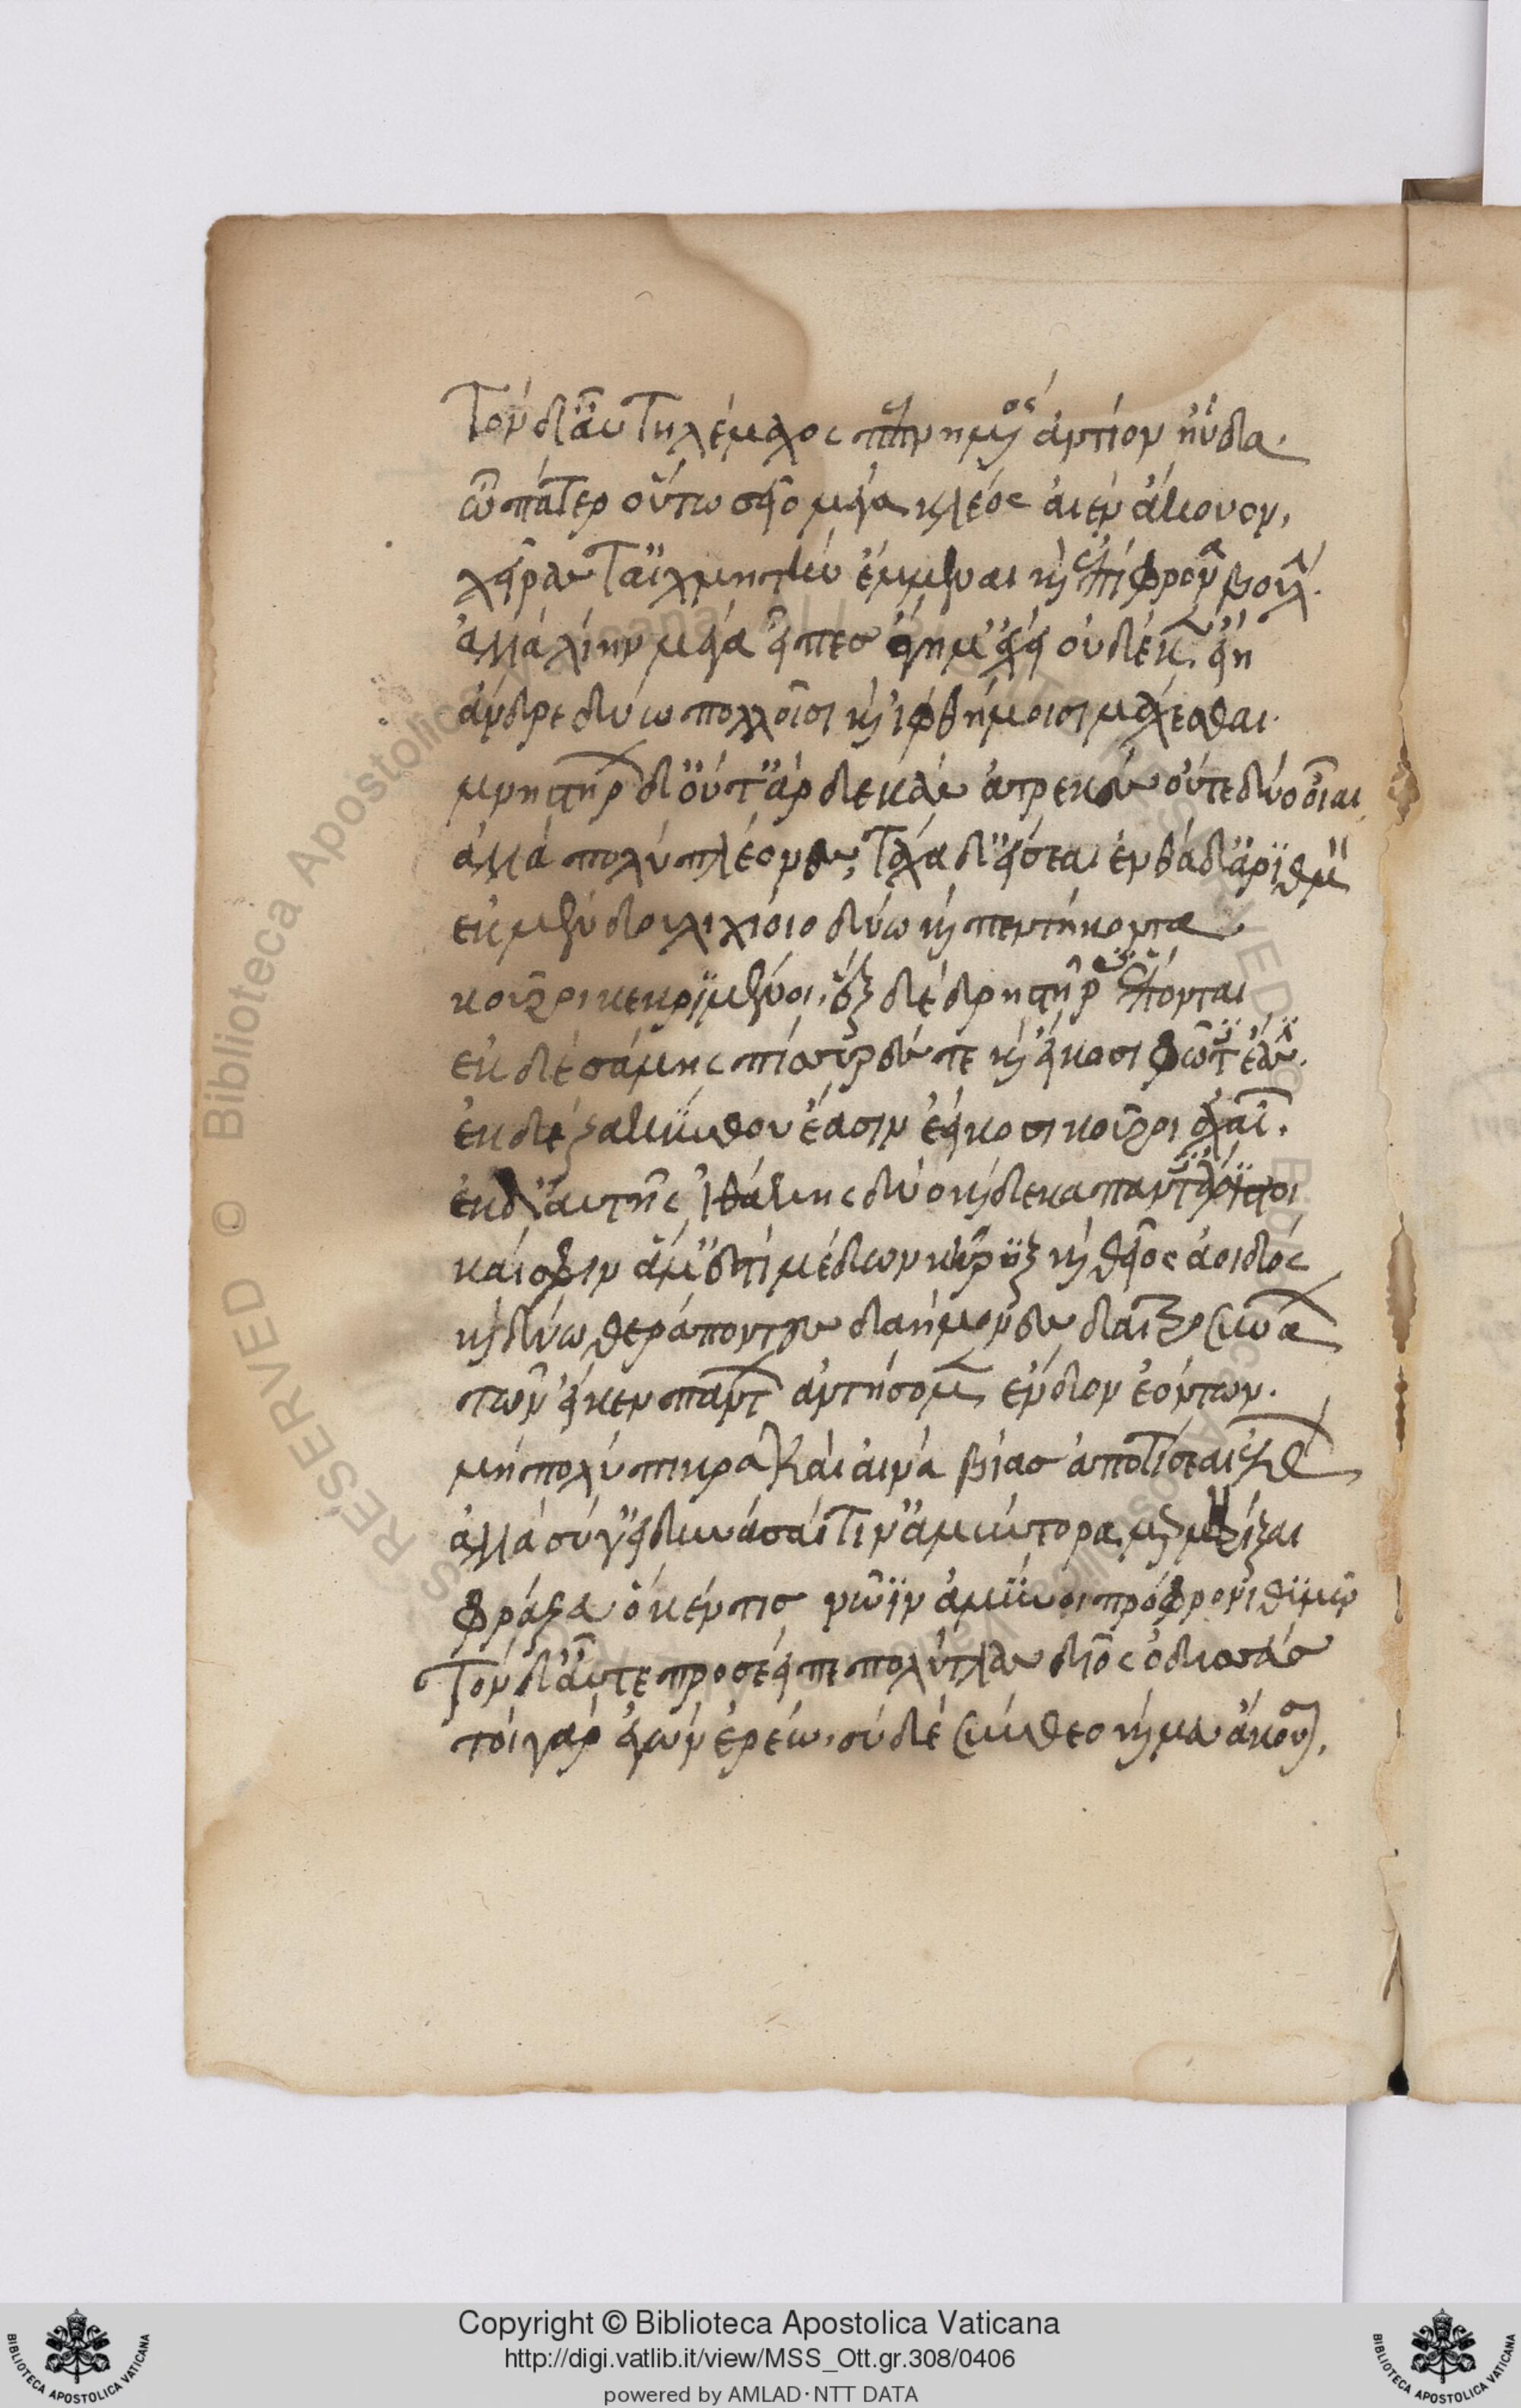 Τὸν δ' ἂυ Τηλέμαχος πεπνημένος ἀντίον ηὔδα.
ὦ πάτερ οὔτω σεῖο μέγα κλέος ἀιὲν ἄκουον,
χεῖρας τ' αἰχμητὴν ἔμμεναι καὶ ἐπίφρονα βουλήν.
ἀλλὰ λίην μέγα εἶπες ἄγη μ' ἔχει οὐδέ κεν εἴη
ἄνδρε δύω πολλοῖσι καὶ ἰφθήμοισι μάχεσθαι.
μνηστήρων δ' οὔτ' ἂρ δεκὰς ἀτρεκὲς οὔτε δύ' οἶαι,
ἀλλὰ πολὺ πλέονες, τάχα δ' εἴσεαι ἐνθάδ' ἀριθμόν
ἐκ μὲν δουλιχίοιο δύω καὶ πεντήκοντα
κοῦροι κεκριμένοι, ἓξ δὲ δρηστῆρες ἕπονται
ἐκ δὲ σάμης πίσυρές τε καὶ εἴκοσι φῶτες ἔασιν.
ἐκ δὲ ζακύνθου ἔασιν ἐείκοσι κοῦροι ἀχαιῶν.
ἐκ δ' ἀυτῆς ἰθάκης δύο καὶ δεκα πάντες ἄριστοι
καί σφιν ἅμ' ἐστὶ μέδων κῆρυξ καὶ θεῖος ἀοιδός
καὶ δύω θεράποντες δαήμονες δαιτροσυνάων
τῶν εἴ κεν πάντων ἀντήσομεν ἔνδον ἐόντων.
μὴ πολύπικρα καὶ αινὰ βίας ἀποτίσεαι ἐλθών
ἀλλὰ σύ γ' εἰ δύνασαί τιν' ἀμύντορα μερμηρίξαι
φράζευ ὅ κέν τις νῶϊν ἀμύνοι πρόφρονι θυμῷ
Τὸν δ' ἂυτε προσέειπε πολύτλας δῖος ὀδυσσεύς
τοὶ γὰρ ἐγὼν ἐρέω, σὺ δὲ σύνθεο καί μευ ἄκουσον.
Copyright © Biblioteca Apostolica Vaticana
http://digi.vatlib.it/view/MSS_Ott.gr.308/0406
powered by AMLAD·NTT DATA